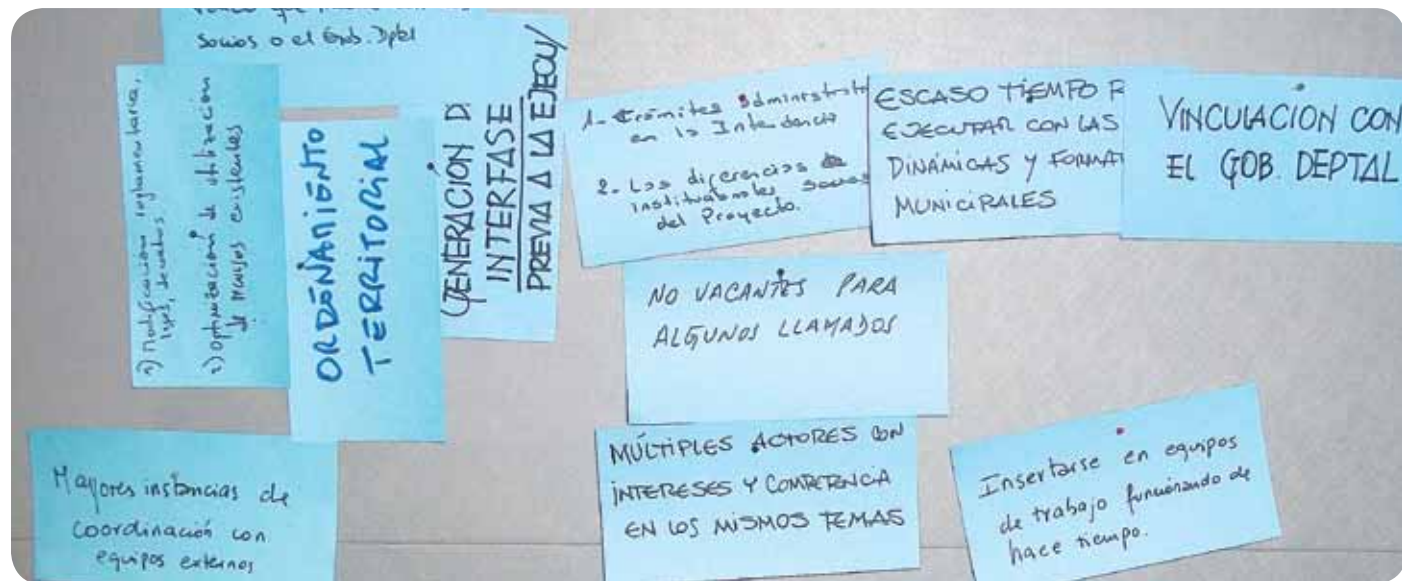 socios o el Gob. Dptal
1) Modificaciones reglamentarias,
2) optimización de utilización
de recursos existentes
ORDENAMIENTO
TERRITORIAL
GENERACIÓN D
INTERFASE
PREVIA A LA EJECU
1- Trámites administrat
en la Intendencia
2- Las diferencias
institucionales socios
del Proyecto.
ESCASO TIEMPO P
EJECUTAR CON LAS
DINÁMICAS Y FORMA
MUNICIPALES
VINCULACIÓN CON
EL GOB. DEPTAL
NO VACANTES PARA
ALGUNOS LLAMADOS
Mayores instancias de
coordinación con
equipos externos
MÚLTIPLES ACTORES CON
INTERESES Y COMPETENCIA
EN LOS MISMOS TEMAS
Insertarse en equipos
de trabajo funcionando de
hace tiempo.